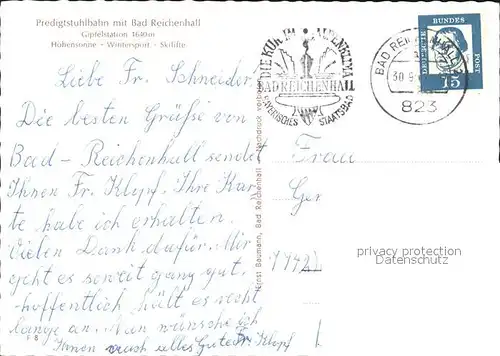 Predigtstuhlbahn mit Bad Reichenhall
Gipfelstation 1640m
Höhensonne - Wintersport - Skilifte
Liebe Fr. Schneider,
Die besten Grüße von
Bad-Reichenhall sendet
Ihnen Fr. Klopf. Ihre Kar-
te habe ich erhalten.
Vielen Dank dafür. Mir
geht es soweit ganz gut.
hoffentlich hält es recht
lange an. Nun wünsche ich
Ihnen noch alles Gute Fr. Klopf
F 8
Ernst Baumann, Bad Reichenhall - Nachdruck verboten
DIE KUR IM ALPENKLIMA
BAD REICHENHALL
BAYERISCHES STAATSBAD
BAD REICHENHALL
30.9
823
DEUTSCHE BUNDESPOST
15
Frau
Ger
privacy protection
addresses removed